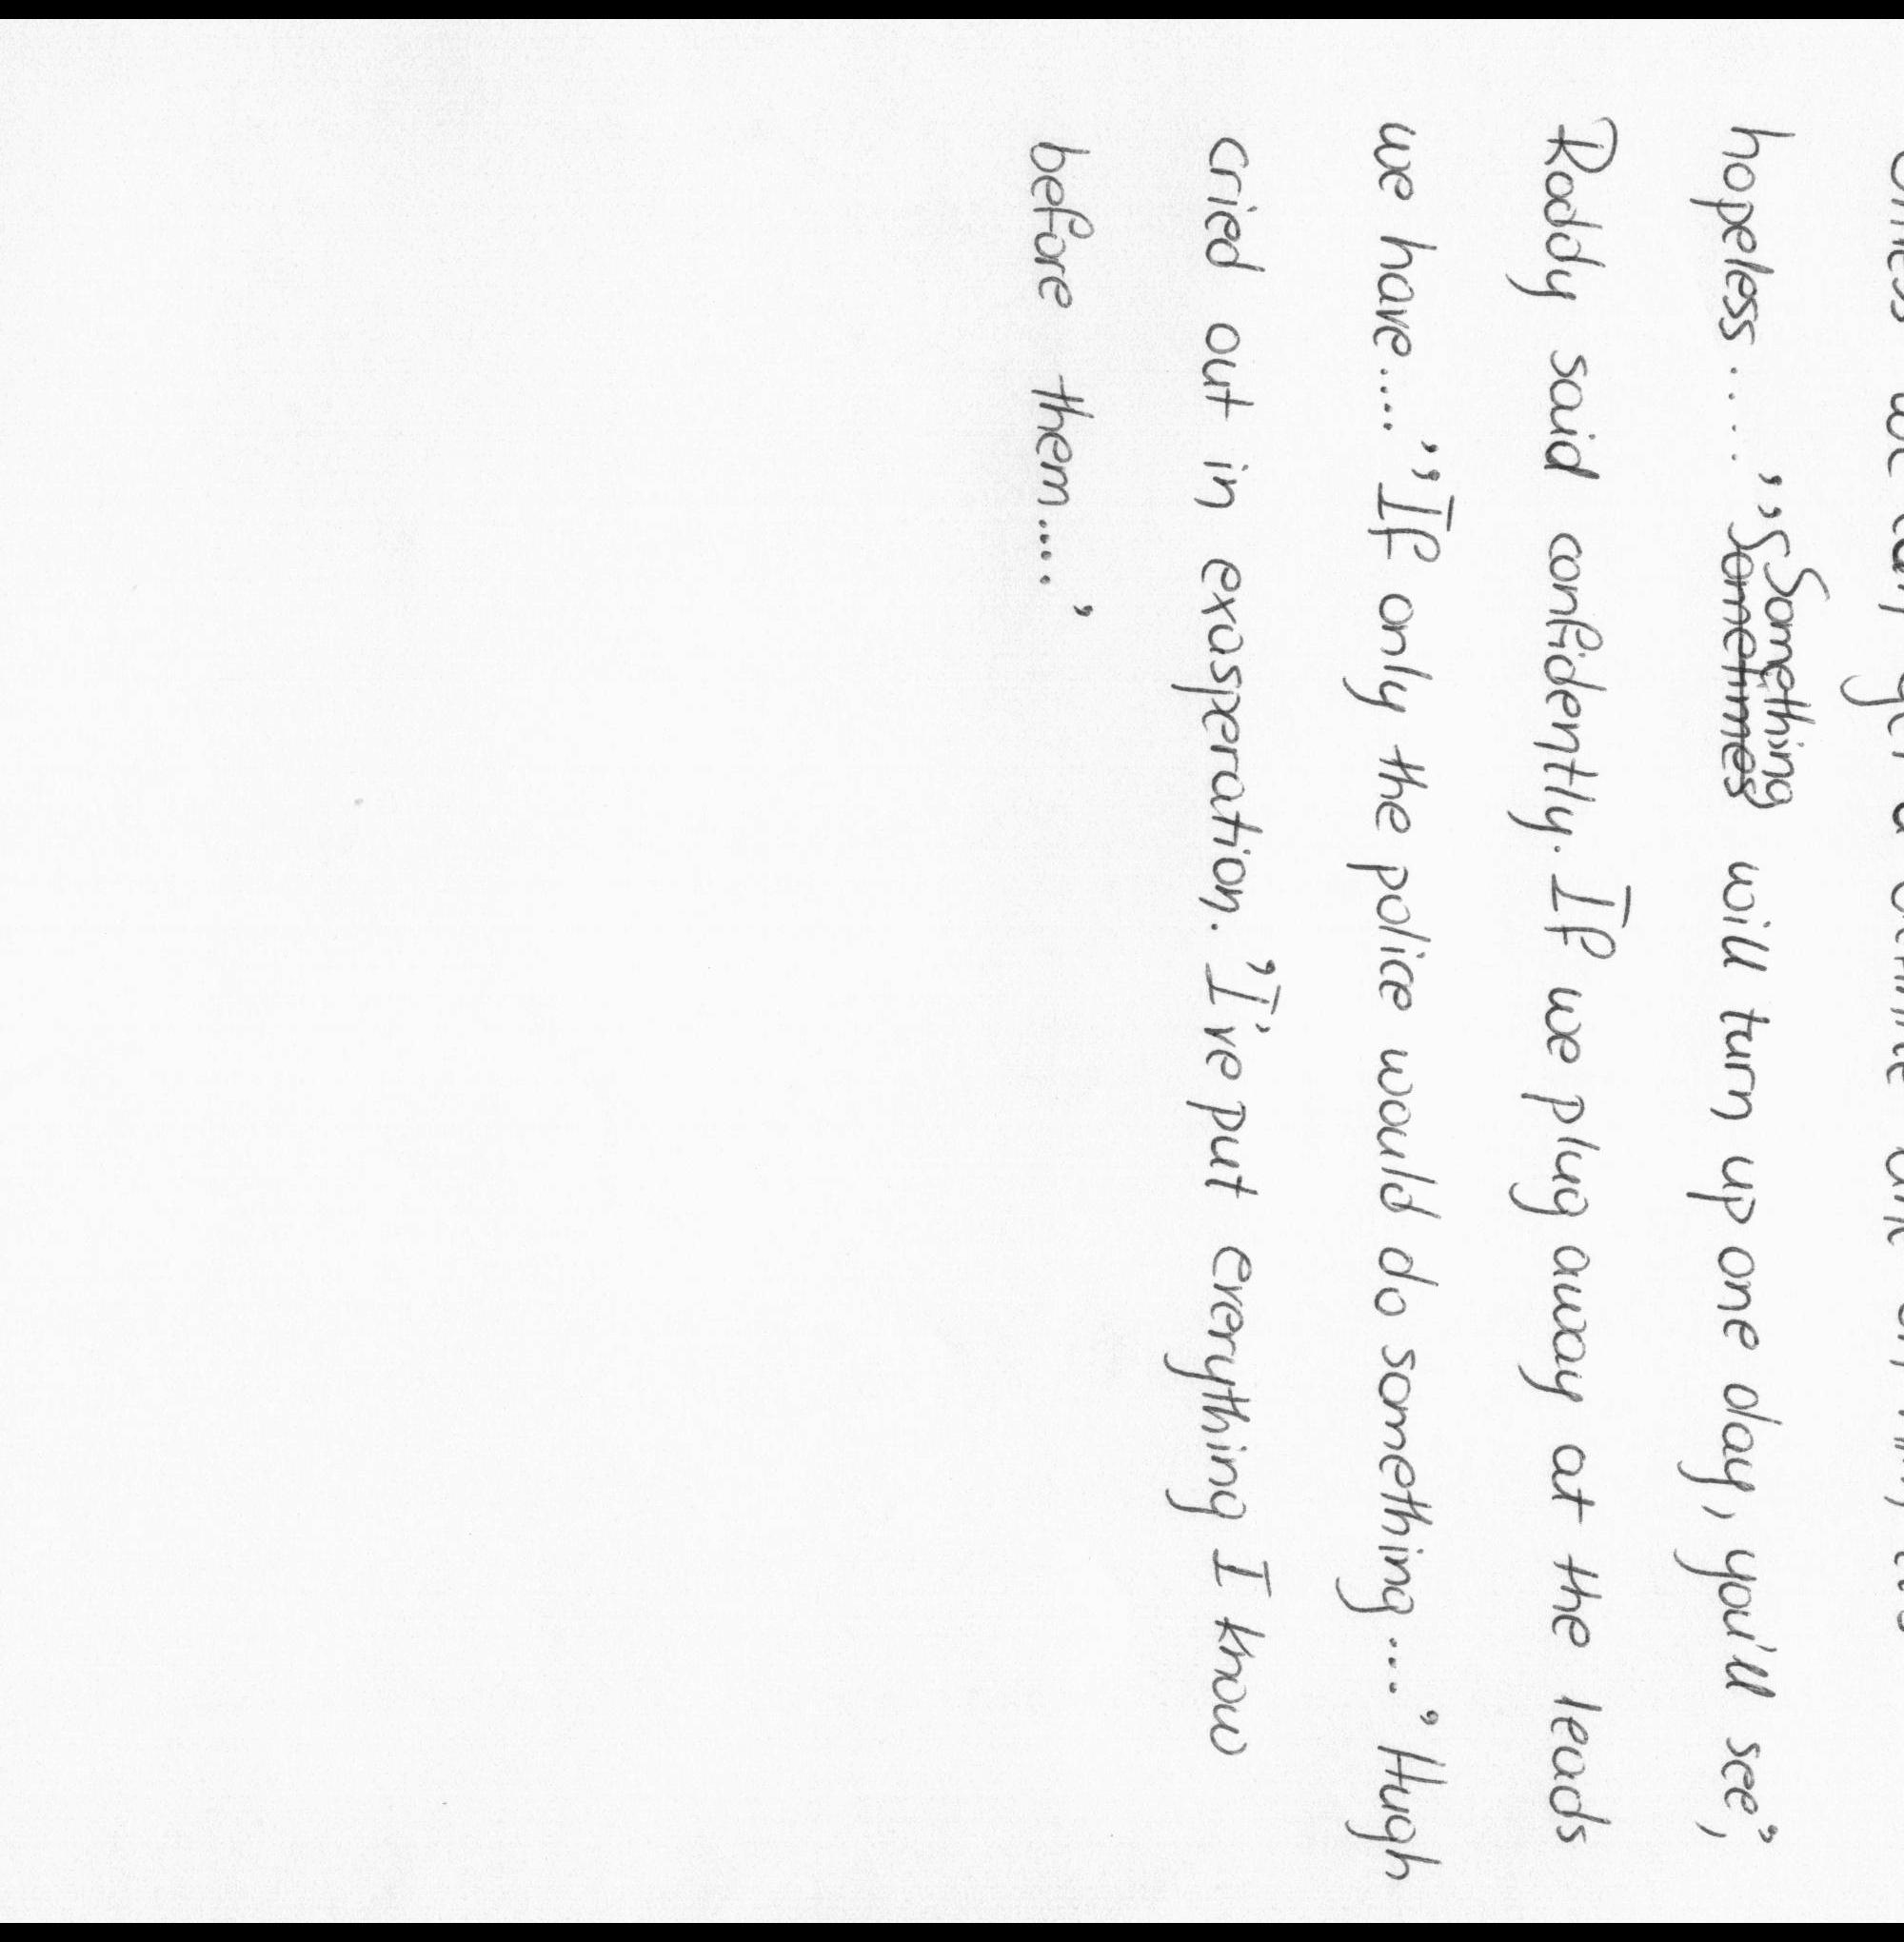 hopeless....' 'Something will turn up one day, you'll see',
Roddy said confidently. If we plug away at the leads
we have....' 'If only the police would do something...' Hugh
cried out in exasperation. 'I've put everything I know
before them....'